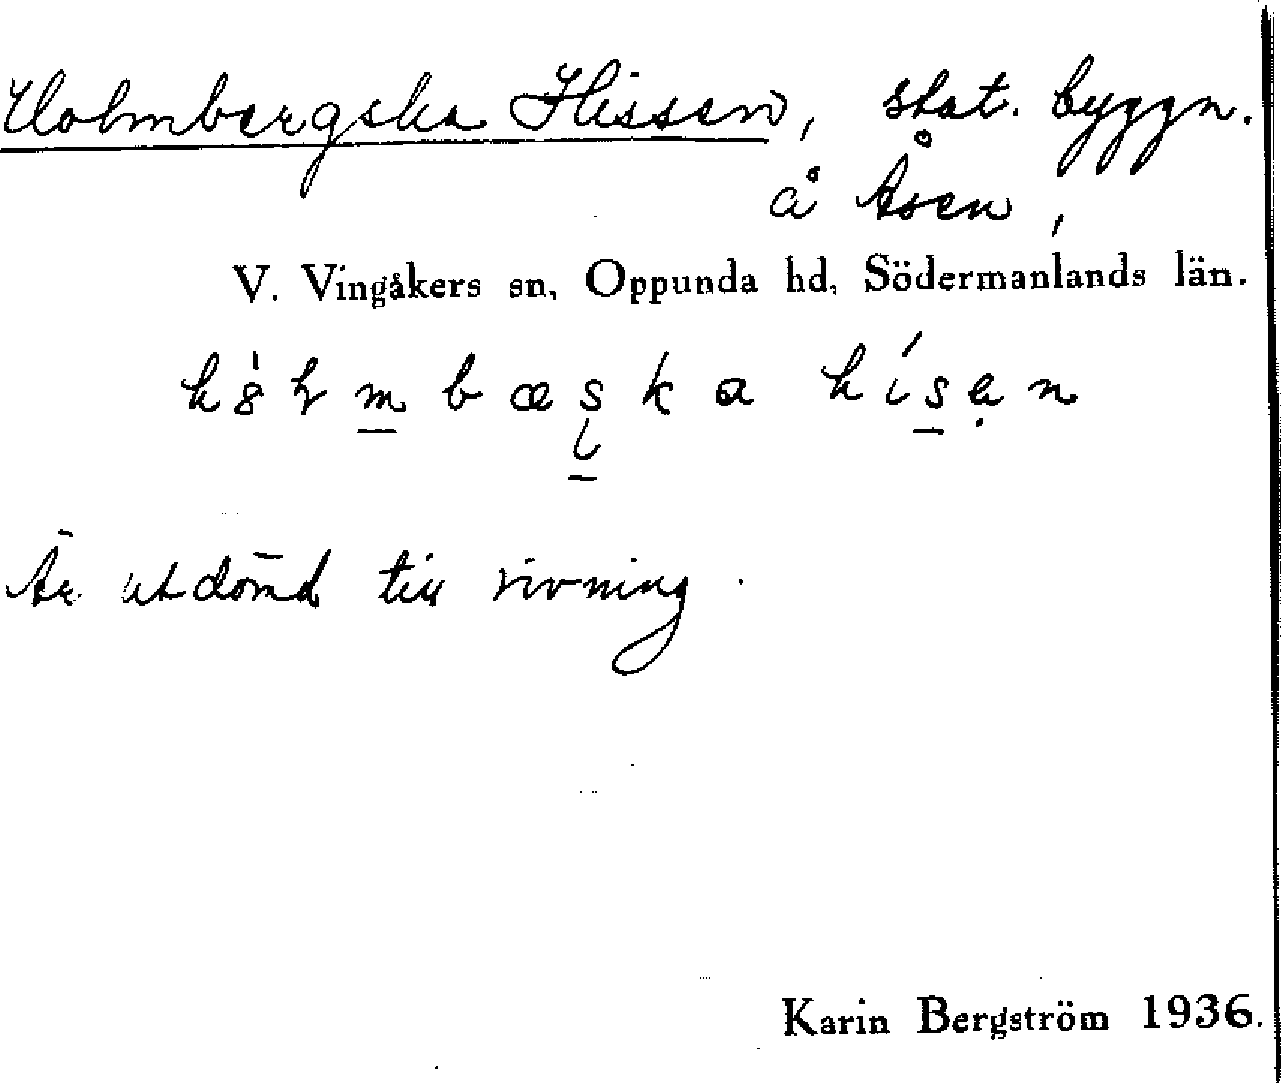 Holmbergska Hissen, stat. byggn.
å Åsen,
V. Vingåkers sn, Oppunda hd, Södermanlands län.
Är utdömd till rivning.
Karin Bergström 1936.